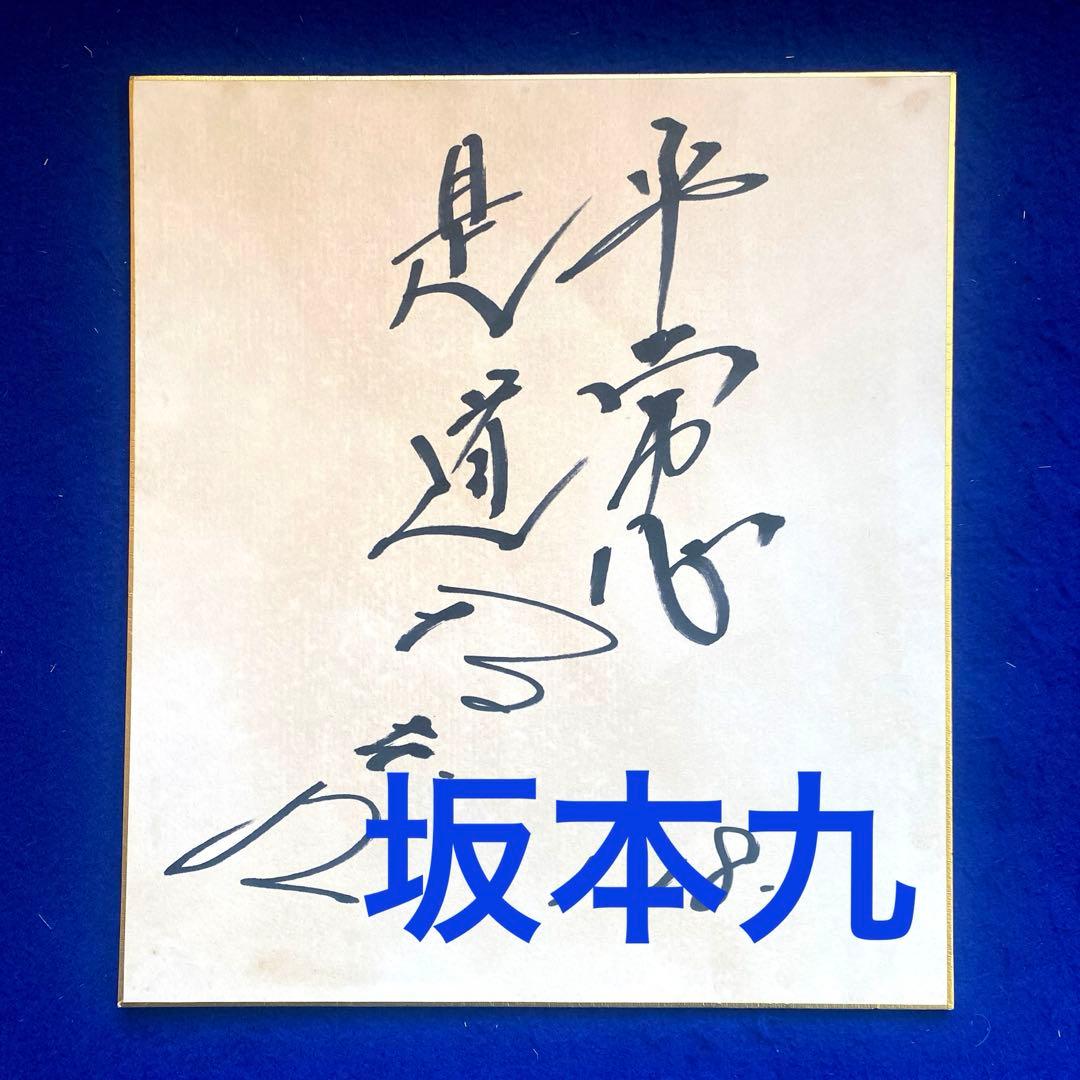 平常心
是道
坂本九